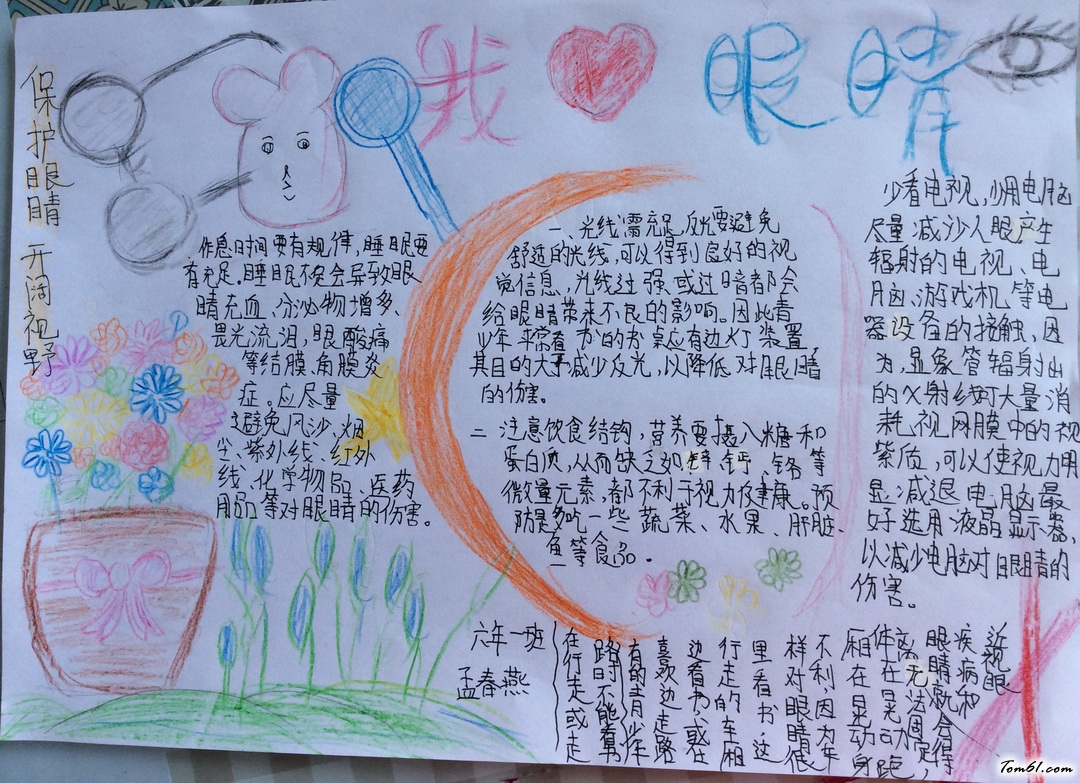 我 眼睛
保护眼睛 开阔视野
作息时间要有规律,睡眠要
有充足.睡眠不足会导致眼
睛充血、分泌物增多、
畏光流泪,眼酸痛
等结膜、角膜炎
症。应尽量
避免风沙、烟
尘、紫外线、红外
线、化学物品、医药
用品等对眼睛的伤害。
一、光线需充足,反光要避免
舒适的光线,可以得到良好的视
觉信息,光线过强或过暗都会
给眼睛带来不良的影响。因此青
少年平常看书的书桌应有边灯装置,
其目的大于减少反光,以降低对眼睛
的伤害。
二 注意饮食结构,营养要摄入糖和
蛋白质,从而缺乏如锌、钙、铬等
微量元素,都不利于视力及健康。预
防是多吃一些蔬菜、水果、肝脏、
鱼等食品.
少看电视,少用电脑
尽量减少人眼产生
辐射的电视、电
脑、游戏机等电
器设备的接触,因
为,显象管辐射出
的X射线可大量消
耗视网膜中的视
紫质,可以使视力明
显减退电脑最
好选用液晶显示器,
以减少电脑对眼睛的
伤害。
六年一班
孟春燕
近视眼
疾病和
眼睛就会得
离无法固定
体在晃动
厢在晃动身跑,
不利,因为车
样对眼睛很
里看书,这
行走的车厢
边看书、或在
喜欢边走路
有的青少年
路时不能看书
在行走或走
Tom61.com